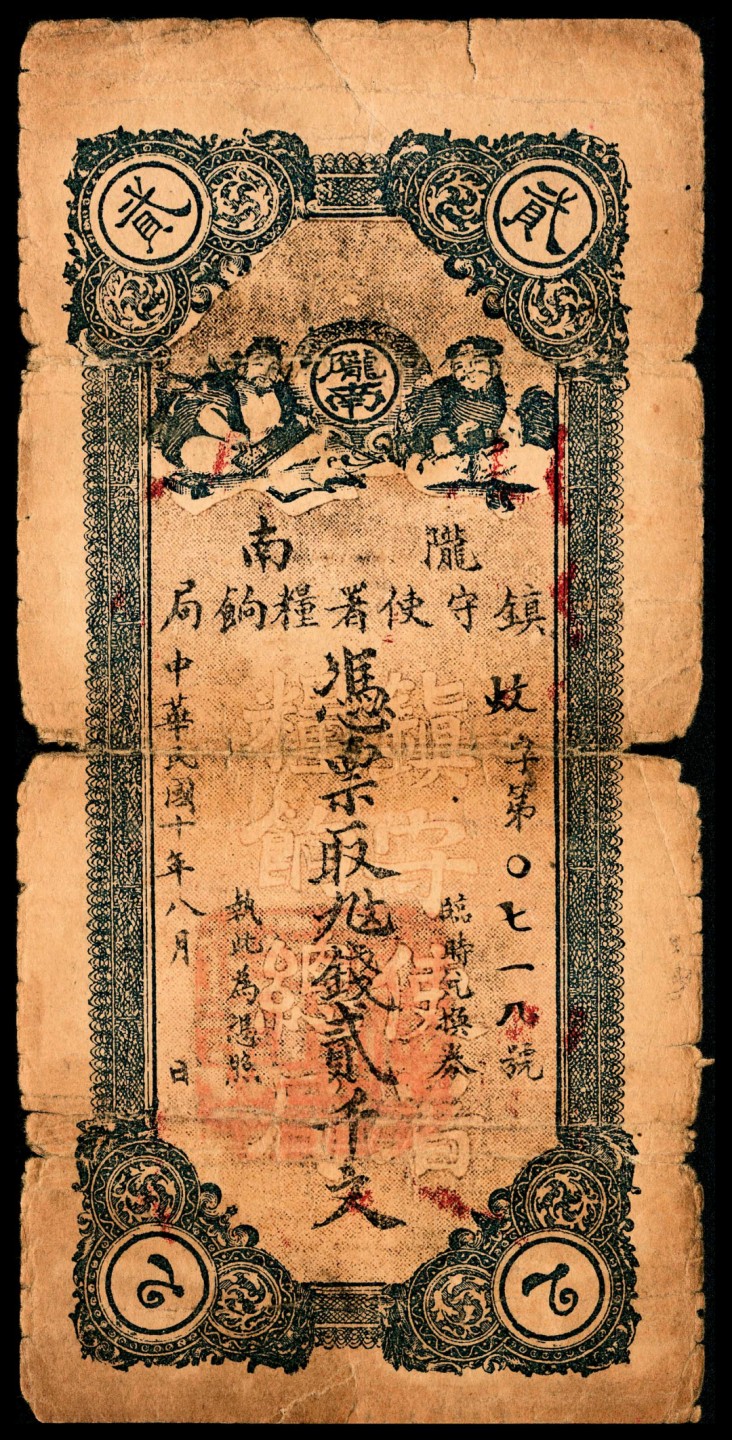 貳
貳
隴南
隴南
鎮守使署糧餉局
蚊字第〇七一八號
臨時兌換券
憑票取錢貳千文
執此為憑照
中華民國十年八月 日
鎮守使署
糧餉總局